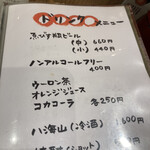 ドリンクメニュー
ゑびす瓶ビール
(中) 660円
(小) 440円
ノンアルコールフリー
400円
ウーロン茶
オレンジジュース
コカコーラ 各250円
八海山(冷酒)
600円
(ショット)